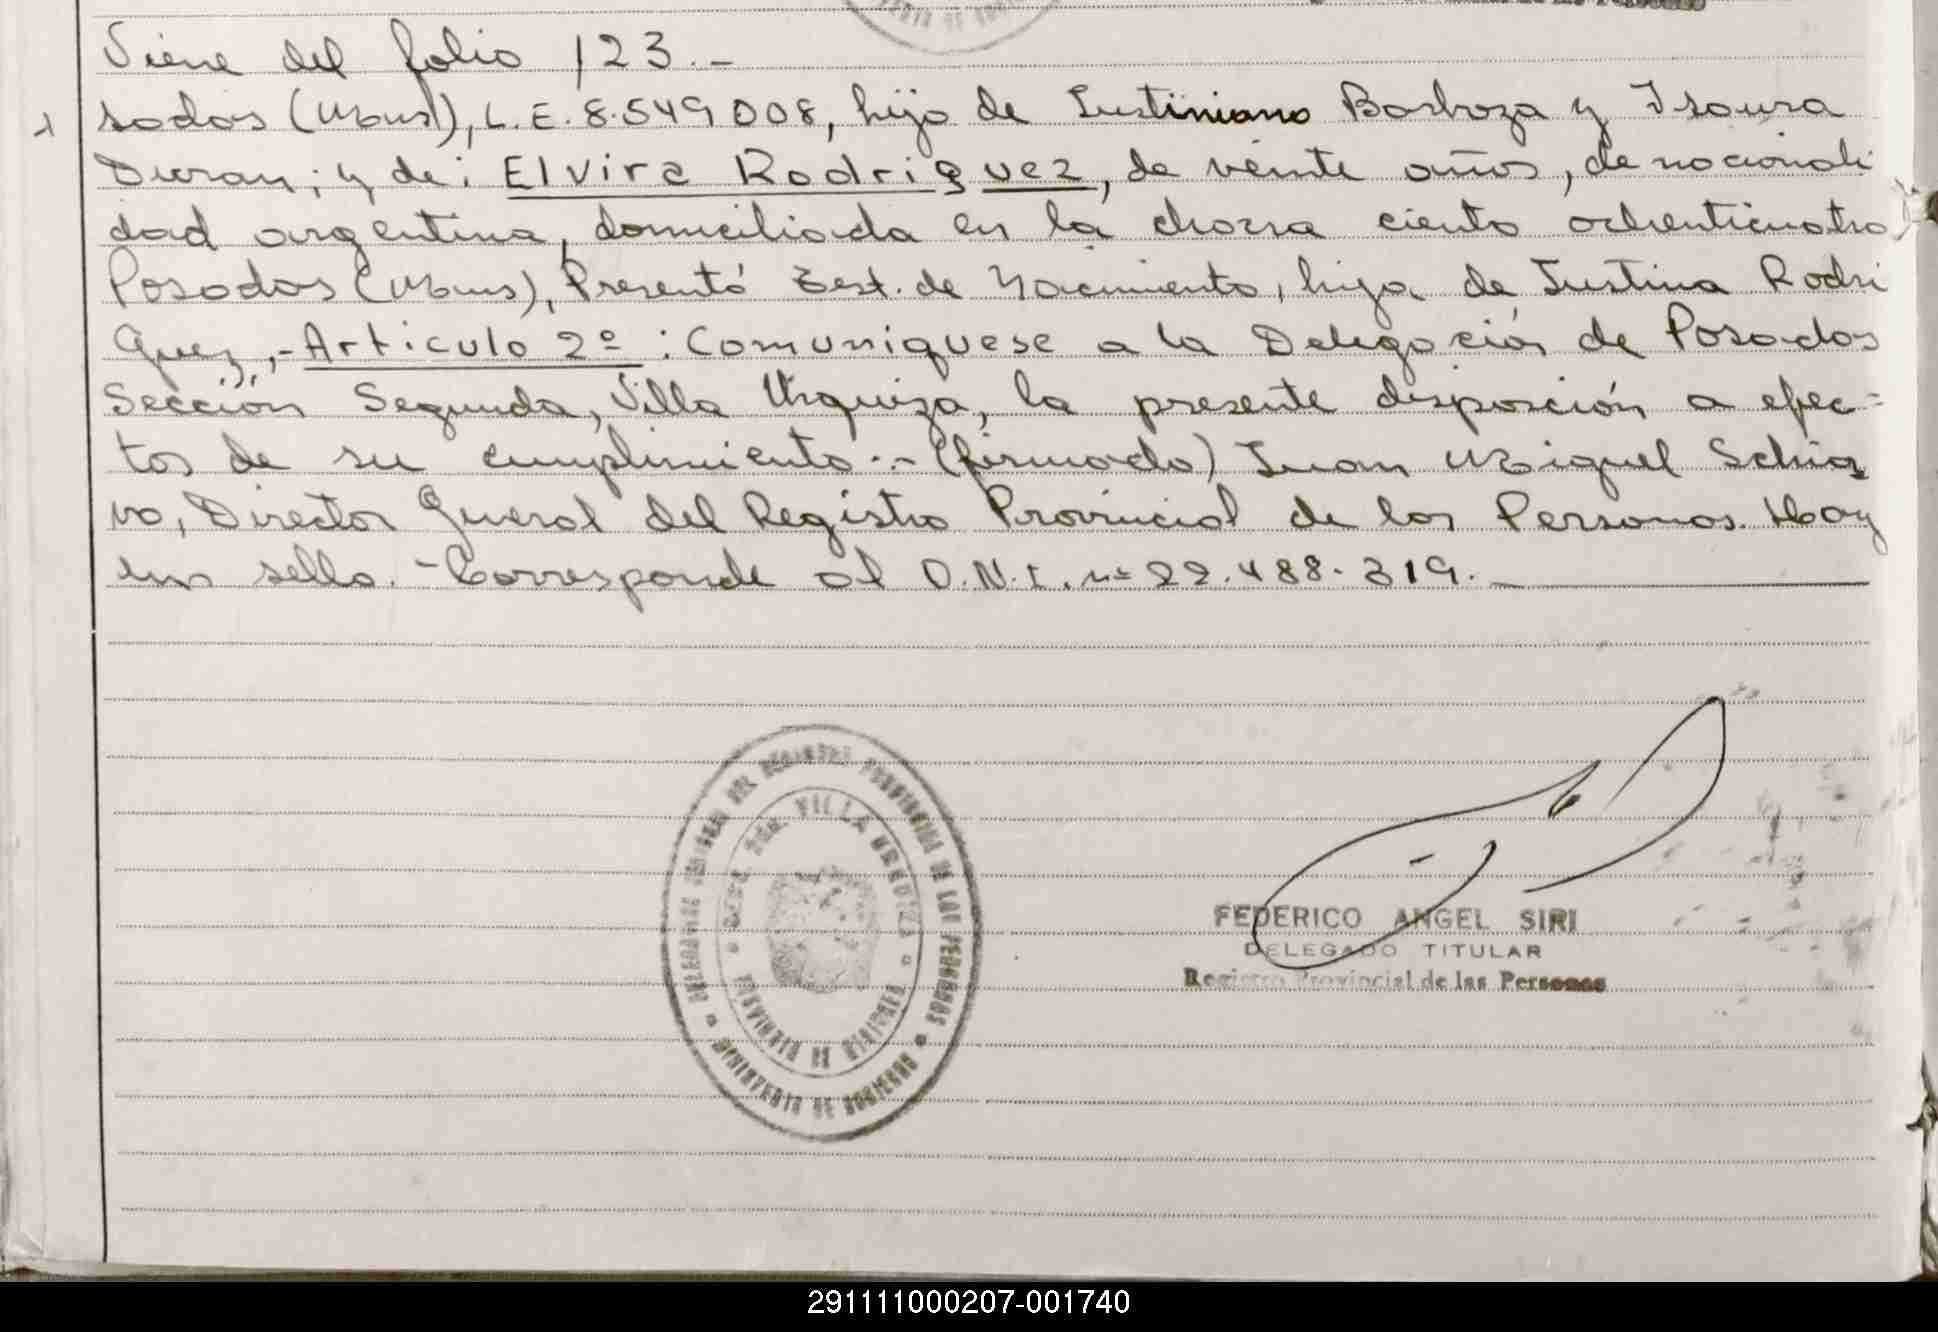 Viene del folio 123.-
sadas (Mnes), L.E. 8.549.008, hijo de Justiniano Barboza y Isaura
Duran; y de: Elvira Rodriguez, de veinte años, de nacionali
dad argentina, domiciliada en la chacra ciento ochenticuatro
Posadas (Mnes), Presentó Test. de Nacimiento, hija de Justina Rodri
guez,-Articulo 2º: Comuniquese a la Delegación de Posadas
Sección Segunda, Villa Urquiza, la presente disposición a efec-
tos de su cumplimiento.-(firmado) Juan Miguel Schia
vo, Director General del Registro Provincial de las Personas. Hay
un sello.-Corresponde al D.N.I. nº 22.488.319.
VILLA URQUIZA
PROVINCIA DE MISIONES
REGISTRO PROVINCIAL DE LAS PERSONAS
MINISTERIO DE GOBIERNO
FEDERICO ANGEL SIRI
DELEGADO TITULAR
Registro Provincial de las Personas
291111000207-001740